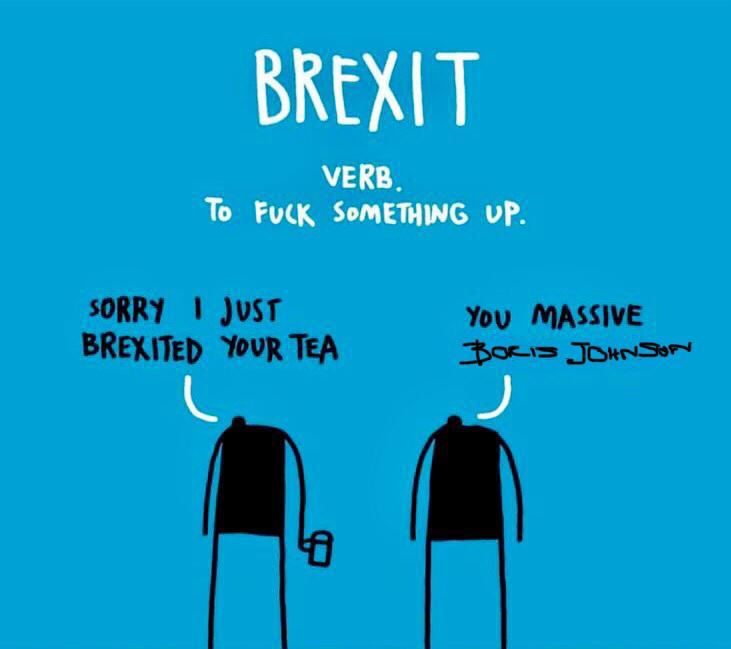 BREXIT
VERB.
TO FUCK SOMETHING UP.
SORRY I JUST
BREXITED YOUR TEA
YOU MASSIVE
BORIS JOHNSON